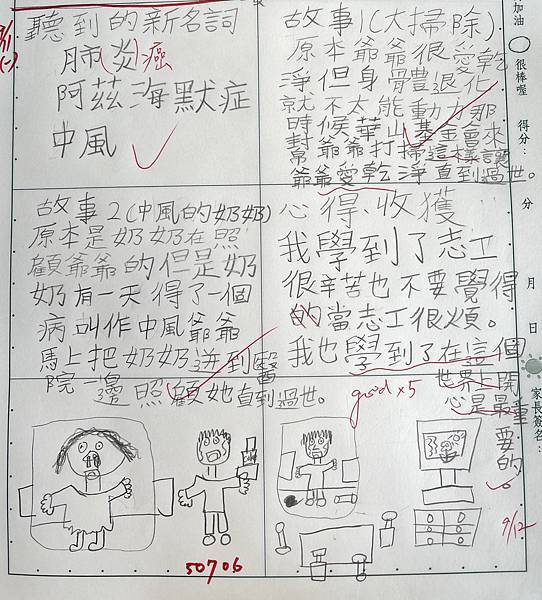 9/11
(一)
聽到的新名詞
肺炎癌
阿茲海默症
中風
故事1(大掃除)
原本爺爺很愛乾
淨但身體退化
就不太能動了那
時候華山基金會來
幫爺爺打掃這樣讓
爺爺愛乾淨直到過世。
故事2(中風的奶奶)
原本是奶奶在照
顧爺爺的但是奶
奶有一天得了一個
病叫作中風爺爺
馬上把奶奶送到醫
院一邊照顧她直到過世。
心得、收獲
我學到了志工
很辛苦也不要覺得
的當志工很煩。
我也學到了在這個
世界上開
心是最重
要的。
good x5
50706
9/12
加油
很棒喔
得分:
分
月
日
家長簽名: